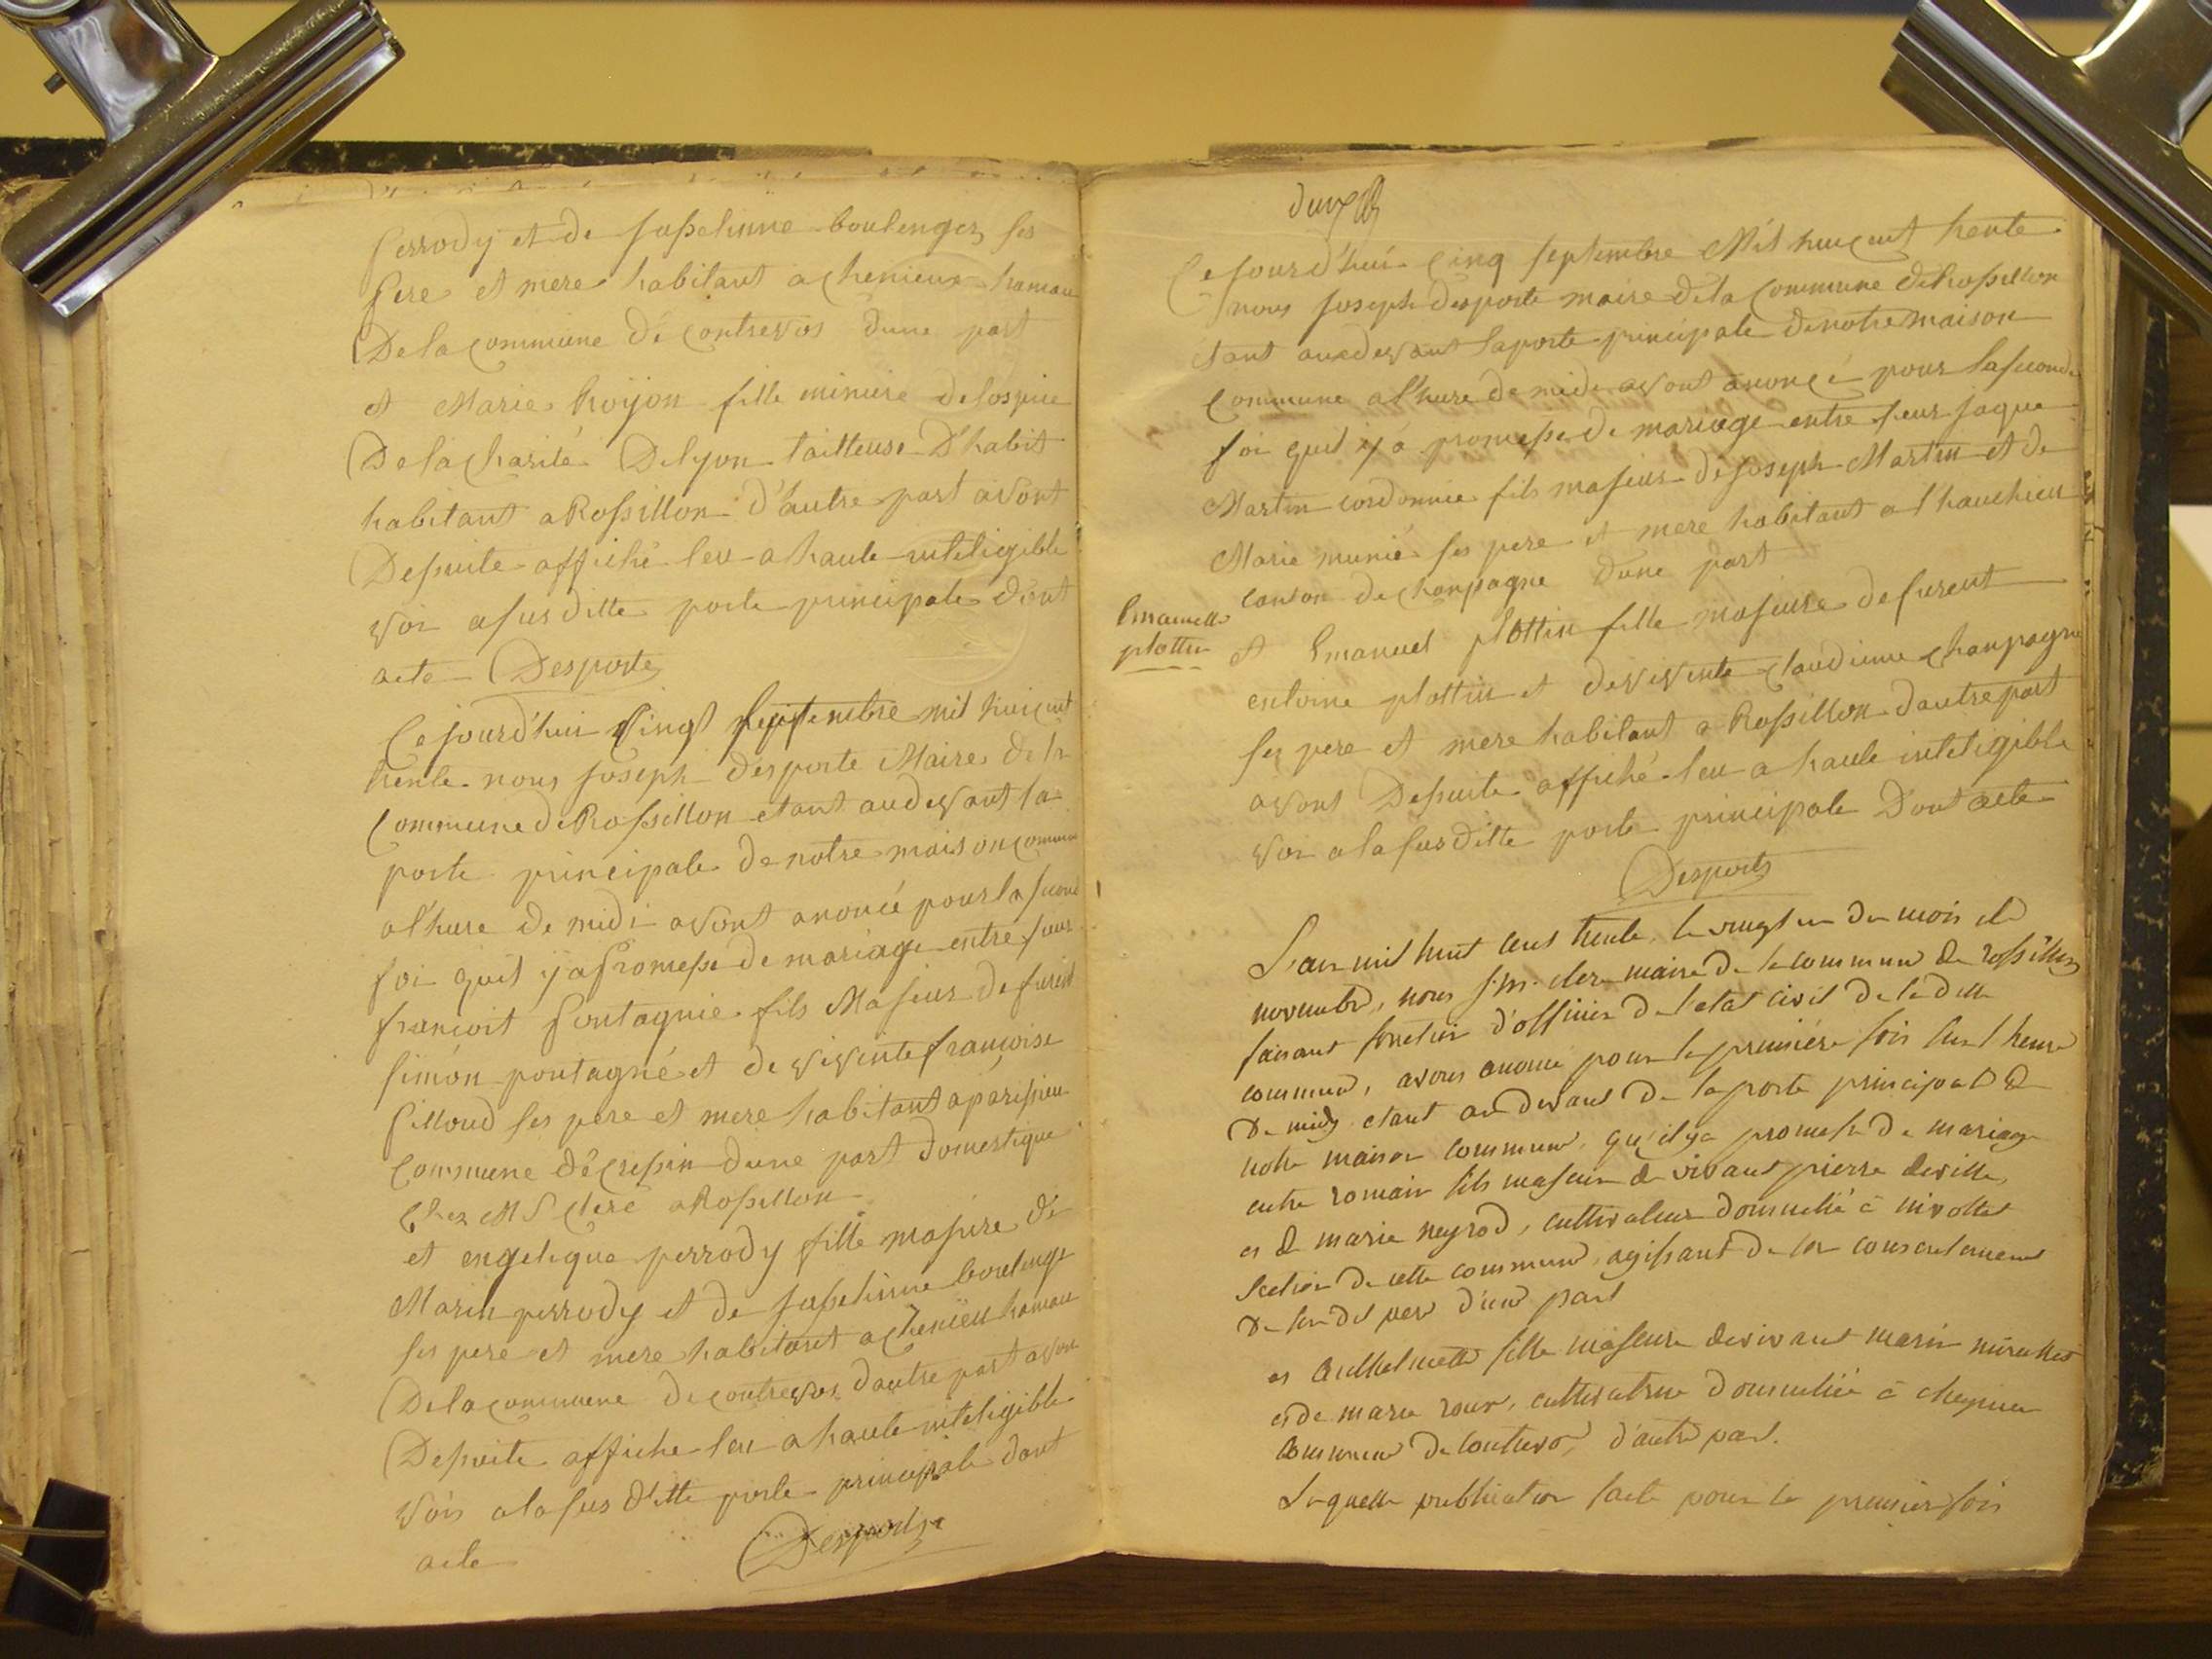 perrody et de Josselinne boulenger ses
pere et mere habitant a chenieux hamau
De la Commune de Contrevos dune part
et Marie Royon fille mineure de lospice
De la Charité De lyon tailleuse D'habit
habitant a Rossillon d'autre part avont
Desuite affiché leu a haute inteligible
voi a susditte porte principale dont
acte Desporte
Ce jourd'hui Cinq Septembre mil huicent
trente nous joseph desporte Maire de la
Commune de Rossillon etant audevant la
porte principale de notre maison commune
a l'hure de midi avont anoncé pour la seconde
foi quil y a promesse de mariage entre sieur
francoit pontagnie fils Majeur de furent
simon pontagné et de vivente francoise
pilloud ses pere et mere habitant a parissieu
Commune de Cressin dune part domestique
Chez M S Clerc a Rossillon
et engelique perrody fille majure de
Marin perrody et de josselinne boulenge
ses pere et mere habitant a chenieu hamau
De la commune de contrevos d'autre part avont
Desuite affiche leu a haute inteligible
Vois a la sus ditte porte principale dont
acte Desporte
deux
Ce jourd'hui Cinq septembre Mil huicent trente
nous joseph desporte maire de la Commune de Rossillon
étant audevant la porte principale de notre maison
Commune a l'hure de midi avont anoncé pour la seconde
foi quil y a promesse de mariage entre sieur jaque
Martin cordonnie fils majeur de joseph Martin et de
Marie munié ses pere et mere habitant a l'hauchieu
canton de Champagne dune part
Emanuelle
plottin
et Emanuel plottin fille majeure de furent
entoine plottin et de vivente claudinne champagne
ses pere et mere habitant a Rossillon d'autre part
avont Desuite affiché leu a haute inteligible
voi a la susditte porte principale Dont acte
Desporte
L'an mil huit cent trente, le vingt un du mois de
novembre, nous j. m. clerc maire de la commune de rossillon
faisant fonction d'officier de l'etat civil de la ditte
commune, avons anoncé pour la première fois sur l'heure
de midy etant au devant de la porte principale de
notre maison commune, qu'il y a promesse de mariage
entre romain fils majeur de vivant pierre deville,
et de marie neyrod, cultivateur domicilié à nivollet
section de cette commune, agissant de son consentement
de son dit pere d'une part
et Guilhelmette fille majeure de vivant marin
et de marie roux, cultivatrice domiciliée à
commune de contrevos, d'autre part.
Laquelle publication faite pour la premier fois